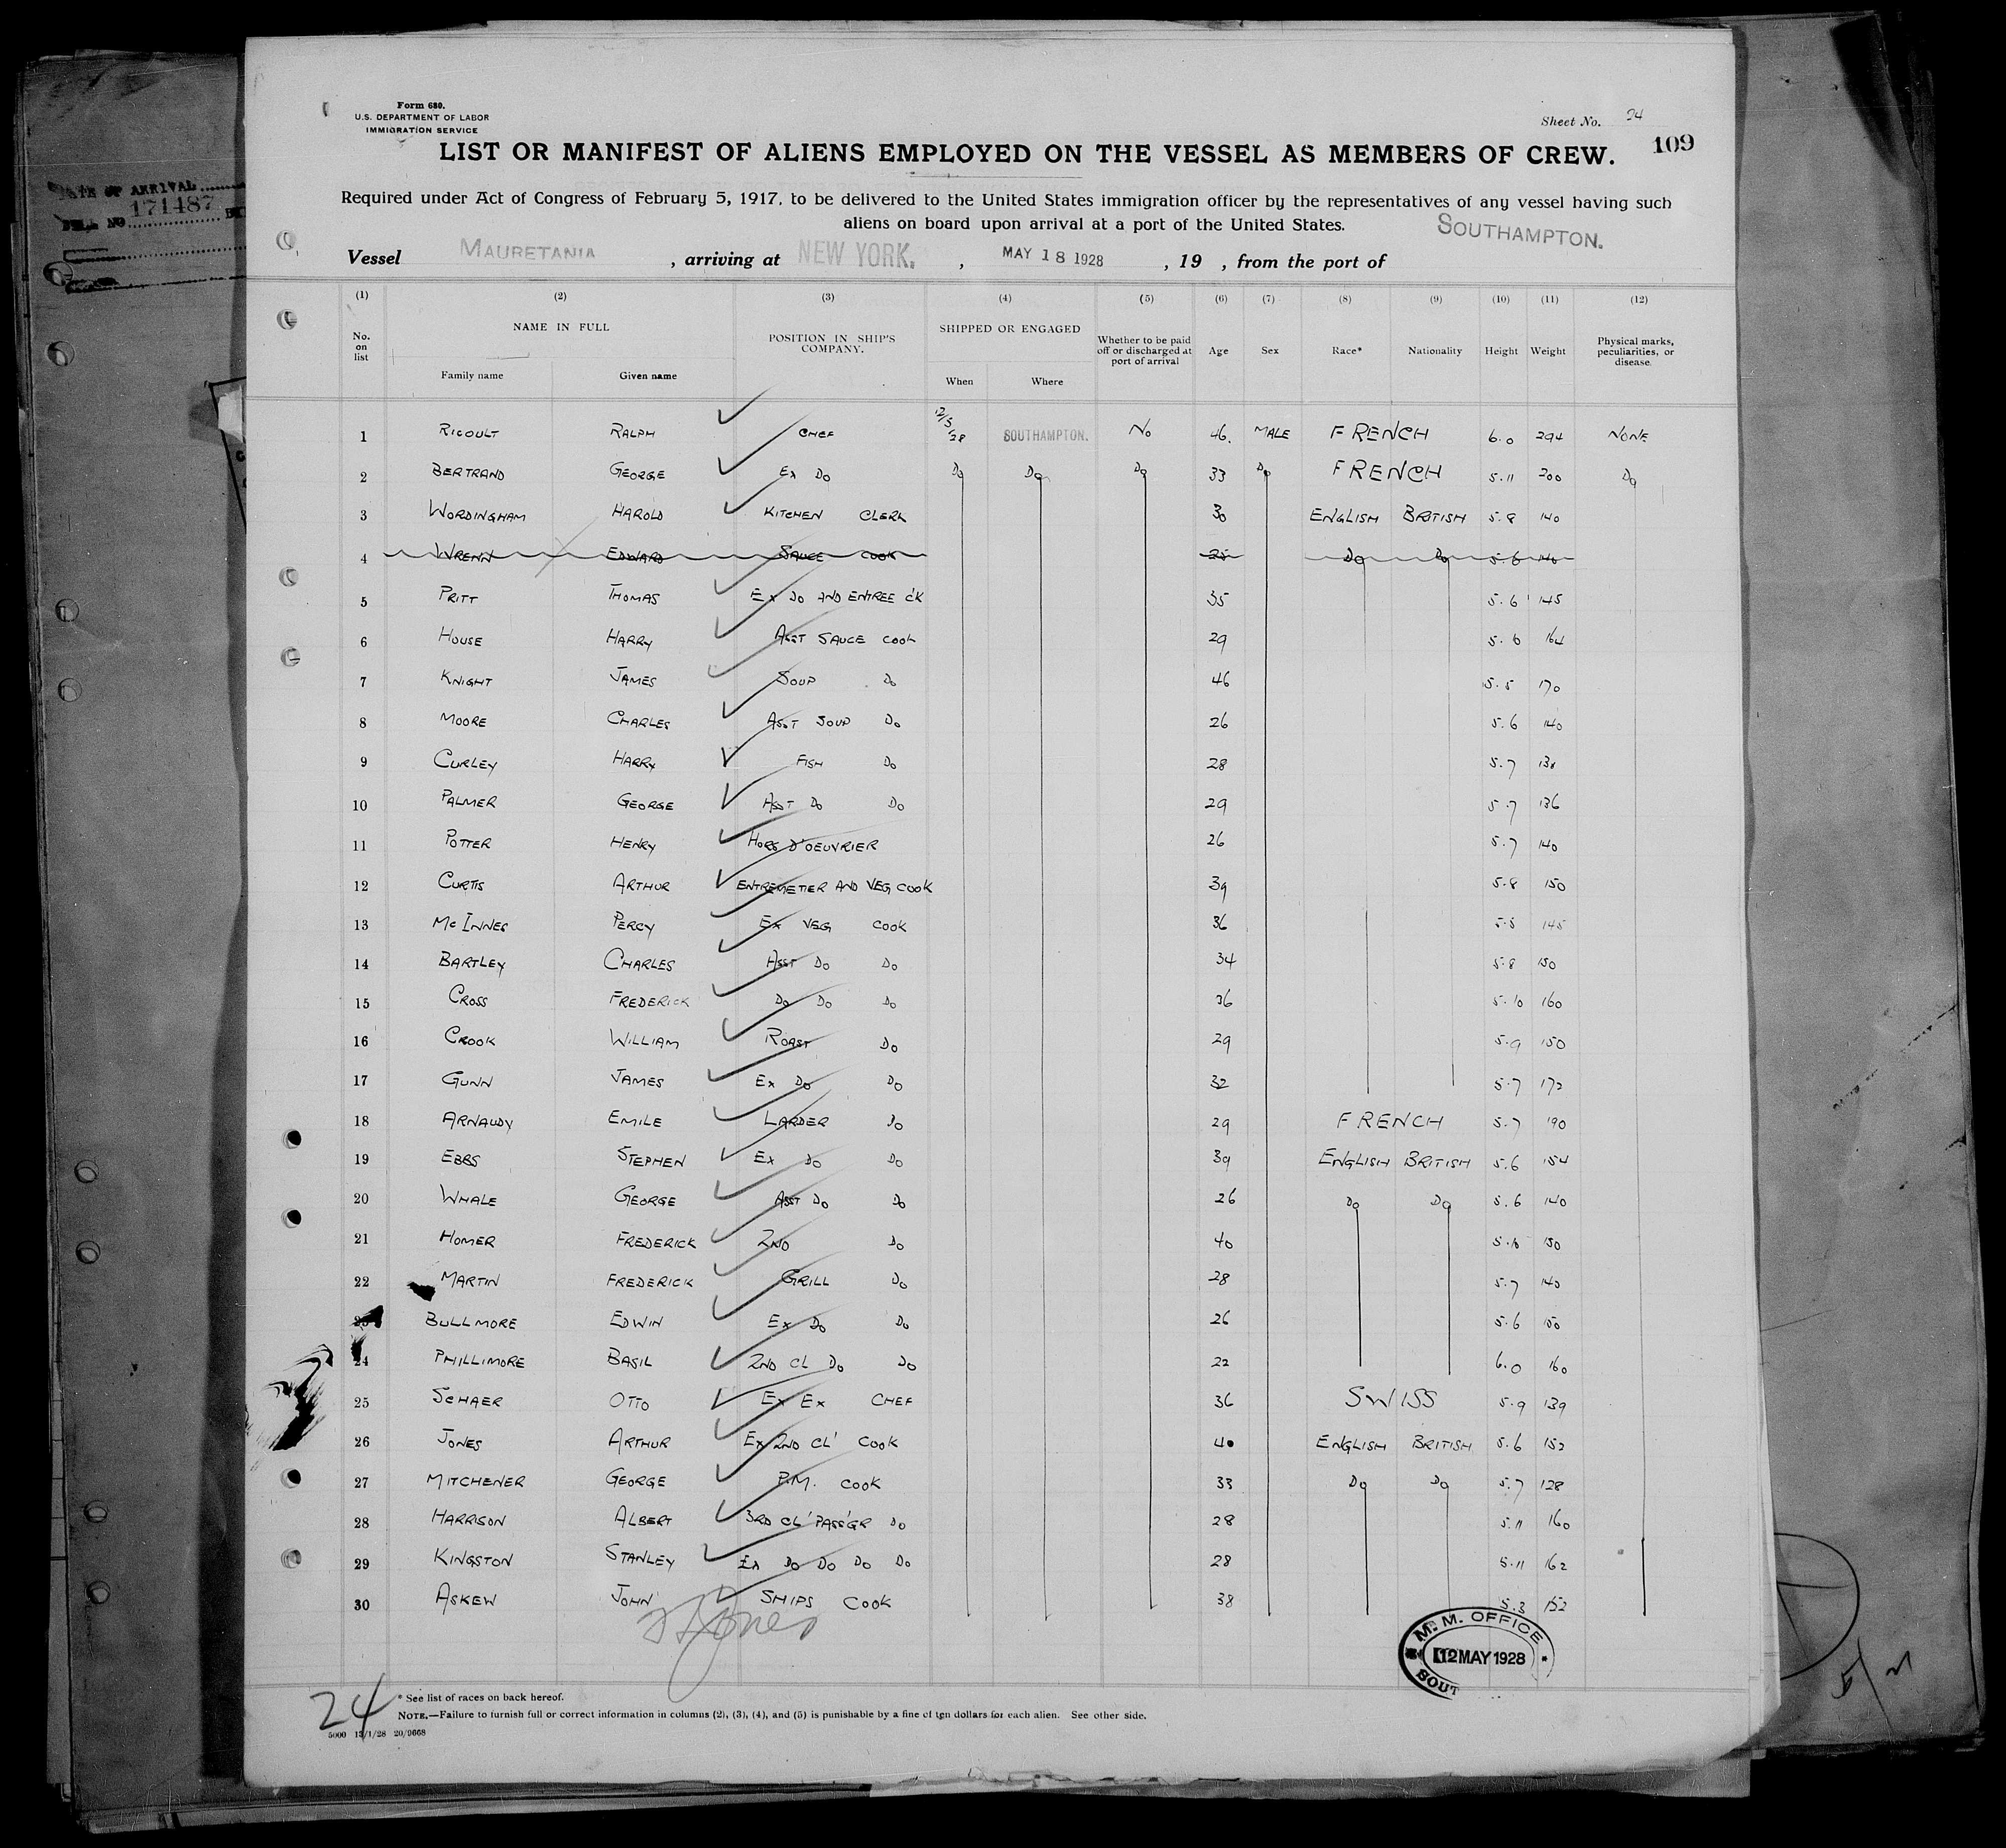 Form 680.
U.S. DEPARTMENT OF LABOR
IMMIGRATION SERVICE
Sheet No. 24
109
LIST OR MANIFEST OF ALIENS EMPLOYED ON THE VESSEL AS MEMBERS OF CREW.
Required under Act of Congress of February 5, 1917, to be delivered to the United States immigration officer by the representatives of any vessel having such
aliens on board upon arrival at a port of the United States.
DATE OF ARRIVAL
171487
Vessel MAURETANIA, arriving at NEW YORK., MAY 18 1928, 19 , from the port of SOUTHAMPTON.
(1) (2) (3) (4) (5) (6) (7) (8) (9) (10) (11) (12)
No. on list NAME IN FULL POSITION IN SHIP'S COMPANY. SHIPPED OR ENGAGED Whether to be paid off or discharged at port of arrival Age Sex Race* Nationality Height Weight Physical marks, peculiarities, or disease.
Family name Given name When Where
1 RICOULT RALPH CHEF 12/5/28 SOUTHAMPTON. NO 46. MALE FRENCH 6.0 294 NONE
2 BERTRAND GEORGE EX DO DO DO DO 33 DO FRENCH 5.11 200 DO
3 WORDINGHAM HAROLD KITCHEN CLERK 30 ENGLISH BRITISH 5.8 140
4 WRENN EDWARD SAUCE COOK 25 DO DO 5.6 140
5 PRITT THOMAS EX DO AND ENTREE C'K 35 5.6 145
6 HOUSE HARRY ASST SAUCE COOK 29 5.6 164
7 KNIGHT JAMES SOUP DO 46 5.5 170
8 MOORE CHARLES ASST SOUP DO 26 5.6 140
9 CURLEY HARRY FISH DO 28 5.7 138
10 PALMER GEORGE ASST DO DO 29 5.7 136
11 POTTER HENRY HORS D'OEUVRIER 26 5.7 140
12 CURTIS ARTHUR ENTREMETIER AND VEG COOK 39 5.8 150
13 MCINNES PERCY EX VEG COOK 36 5.5 145
14 BARTLEY CHARLES ASST DO DO 34 5.8 150
15 CROSS FREDERICK DO DO DO 36 5.10 160
16 CROOK WILLIAM ROAST DO 29 5.9 150
17 GUNN JAMES EX DO DO 32 5.7 172
18 ARNAUDY EMILE LARDER DO 29 FRENCH 5.7 190
19 EBBS STEPHEN EX DO DO 39 ENGLISH BRITISH 5.6 154
20 WHALE GEORGE ASST DO DO 26 DO DO 5.6 140
21 HOMER FREDERICK 2ND DO 40 5.10 150
22 MARTIN FREDERICK GRILL DO 28 5.7 140
23 BULLMORE EDWIN EX DO DO 26 5.6 150
24 PHILLIMORE BASIL 2ND CL DO DO 22 6.0 160
25 SCHAER OTTO EX EX CHEF 36 SWISS 5.9 139
26 JONES ARTHUR EX 2ND CL' COOK 40 ENGLISH BRITISH 5.6 152
27 MITCHENER GEORGE P.M. COOK 33 DO DO 5.7 128
28 HARRISON ALBERT 3RD CL' PASS'GR DO 28 5.11 160
29 KINGSTON STANLEY EX DO DO DO DO 28 5.11 162
30 ASKEW JOHN SHIPS COOK 38 5.3 152
M. M. OFFICE
12 MAY 1928
SOUT
24
* See list of races on back hereof.
NOTE.—Failure to furnish full or correct information in columns (2), (3), (4), and (5) is punishable by a fine of ten dollars for each alien. See other side.
5000 13/1/28 20/9668